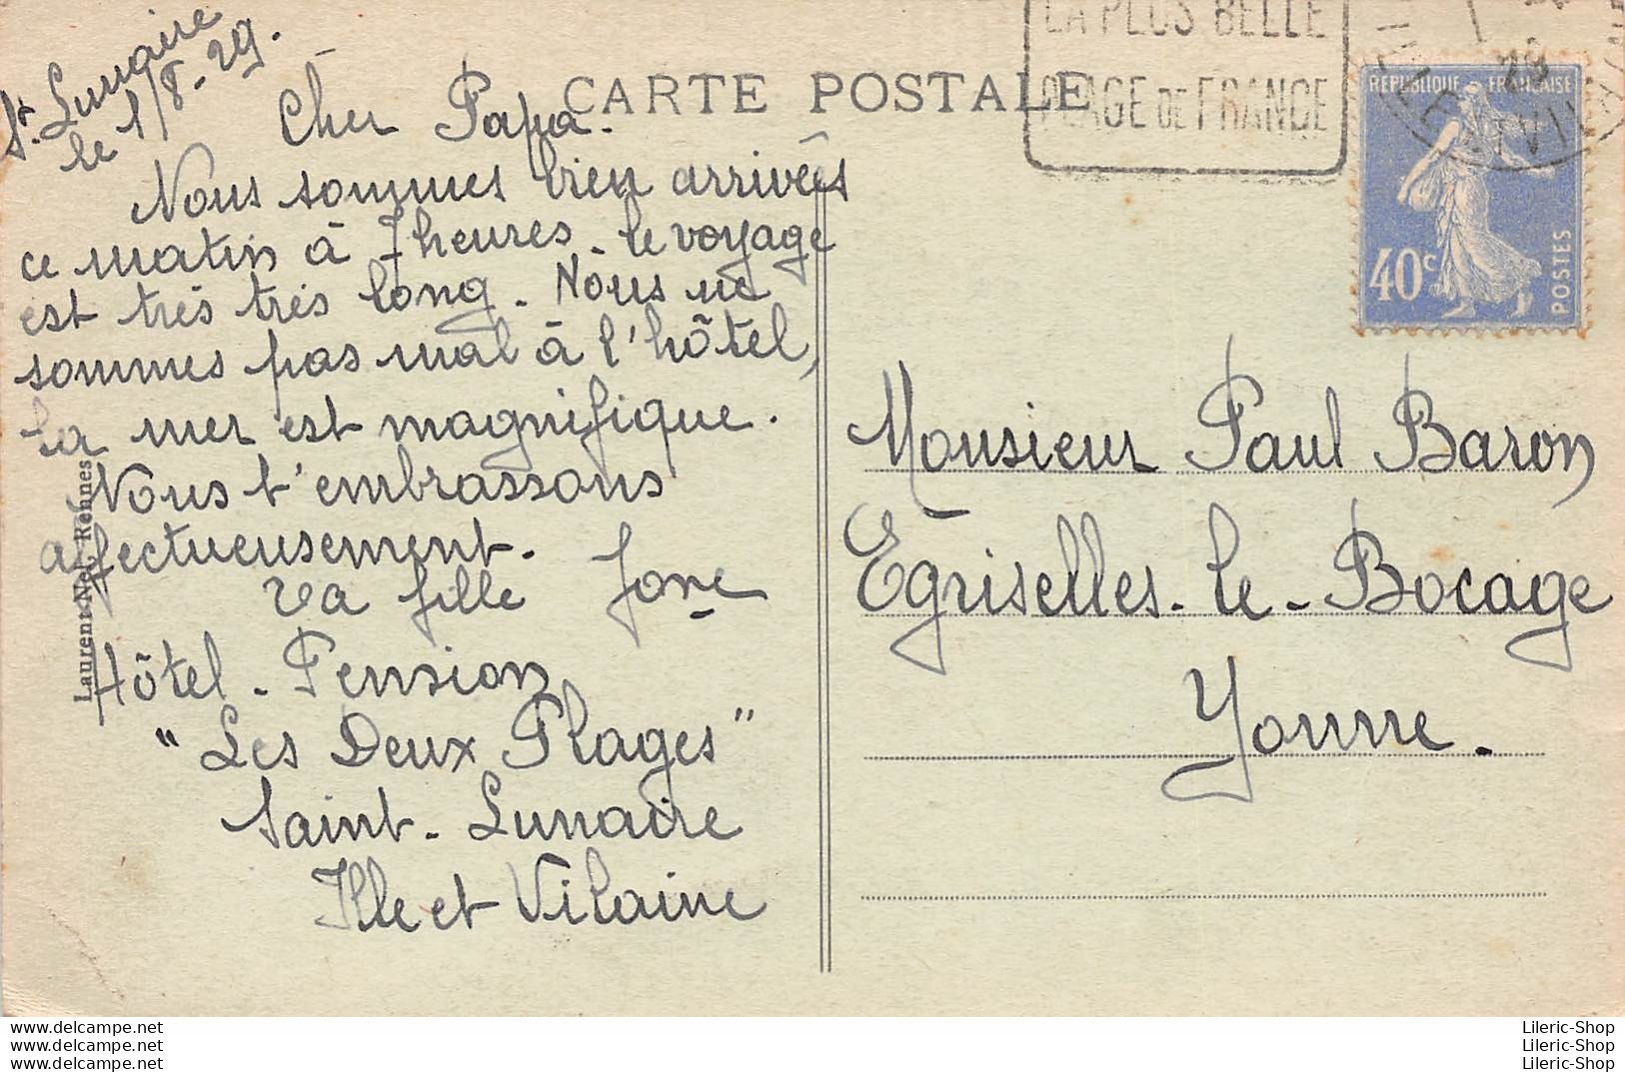 St Lunaire
le 1/8-29.
CARTE POSTALE
LA PLUS BELLE
PLAGE DE FRANCE
REPUBLIQUE FRANÇAISE
40c
POSTES
Cher Papa.
Nous sommes bien arrivés
ce matin à 7 heures. le voyage
est très très long. Nous ne
sommes pas mal à l'hôtel,
la mer est magnifique.
Nous t'embrassons
affectueusement.
ta fille
Hôtel-Pension
"Les Deux Plages"
Saint-Lunaire
Ille et Vilaine
Laurent-Nel, Rennes
Monsieur Paul Baron
Egriselles-le-Bocage
Yonne.
www.delcampe.net
www.delcampe.net
www.delcampe.net
Lileric-Shop
Lileric-Shop
Lileric-Shop